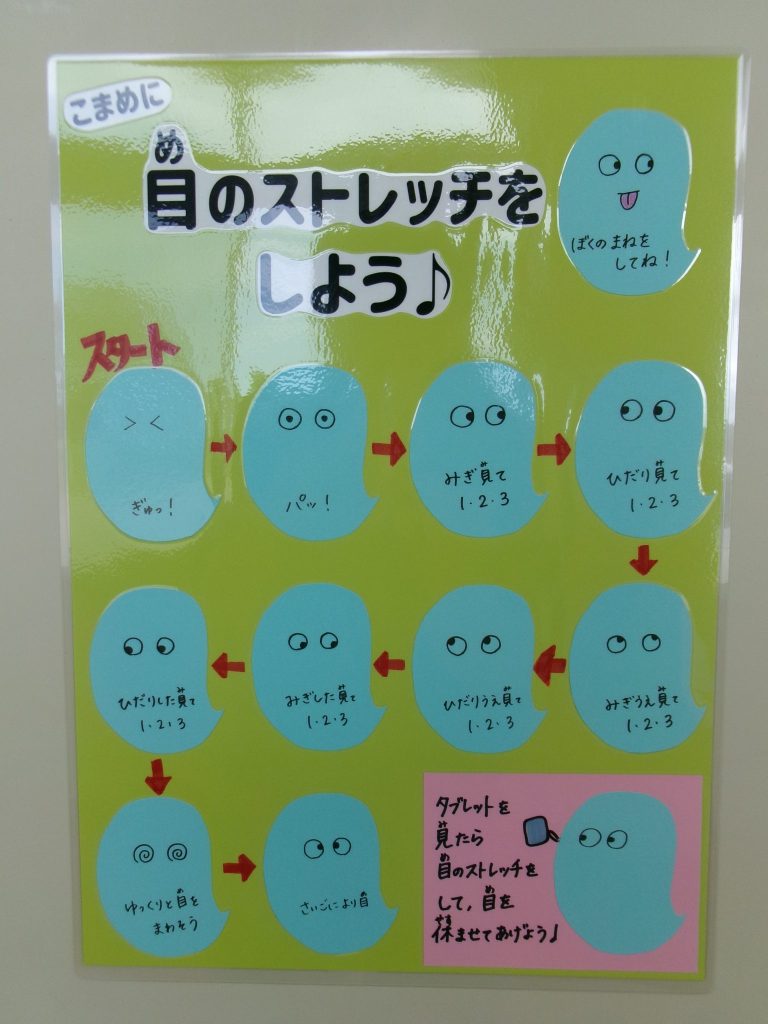 こまめに
め
目のストレッチを
しよう♪
ぼくのまねを
してね!
スタート
ぎゅっ!
パッ!
みぎ見て
1・2・3
ひだり見て
1・2・3
みぎうえ見て
1・2・3
ひだりうえ見て
1・2・3
みぎした見て
1・2・3
ひだりした見て
1・2・3
ゆっくりと目を
まわそう
さいごにより目
タブレットを
見たら
目のストレッチを
して、目を
休ませてあげよう♪